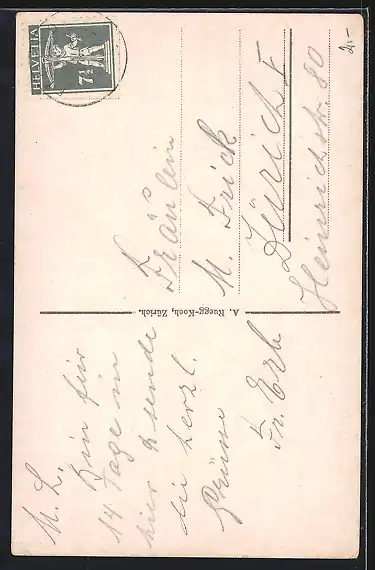 M. L.
Bin für
14 Tage in
hier & sende
die herzl.
Grüsse
Fr. Erb
A. Ruegg-Koch, Zürich.
HELVETIA
7½
Fräulein
M. Frick
Zürich I
Heinrichstr. 80